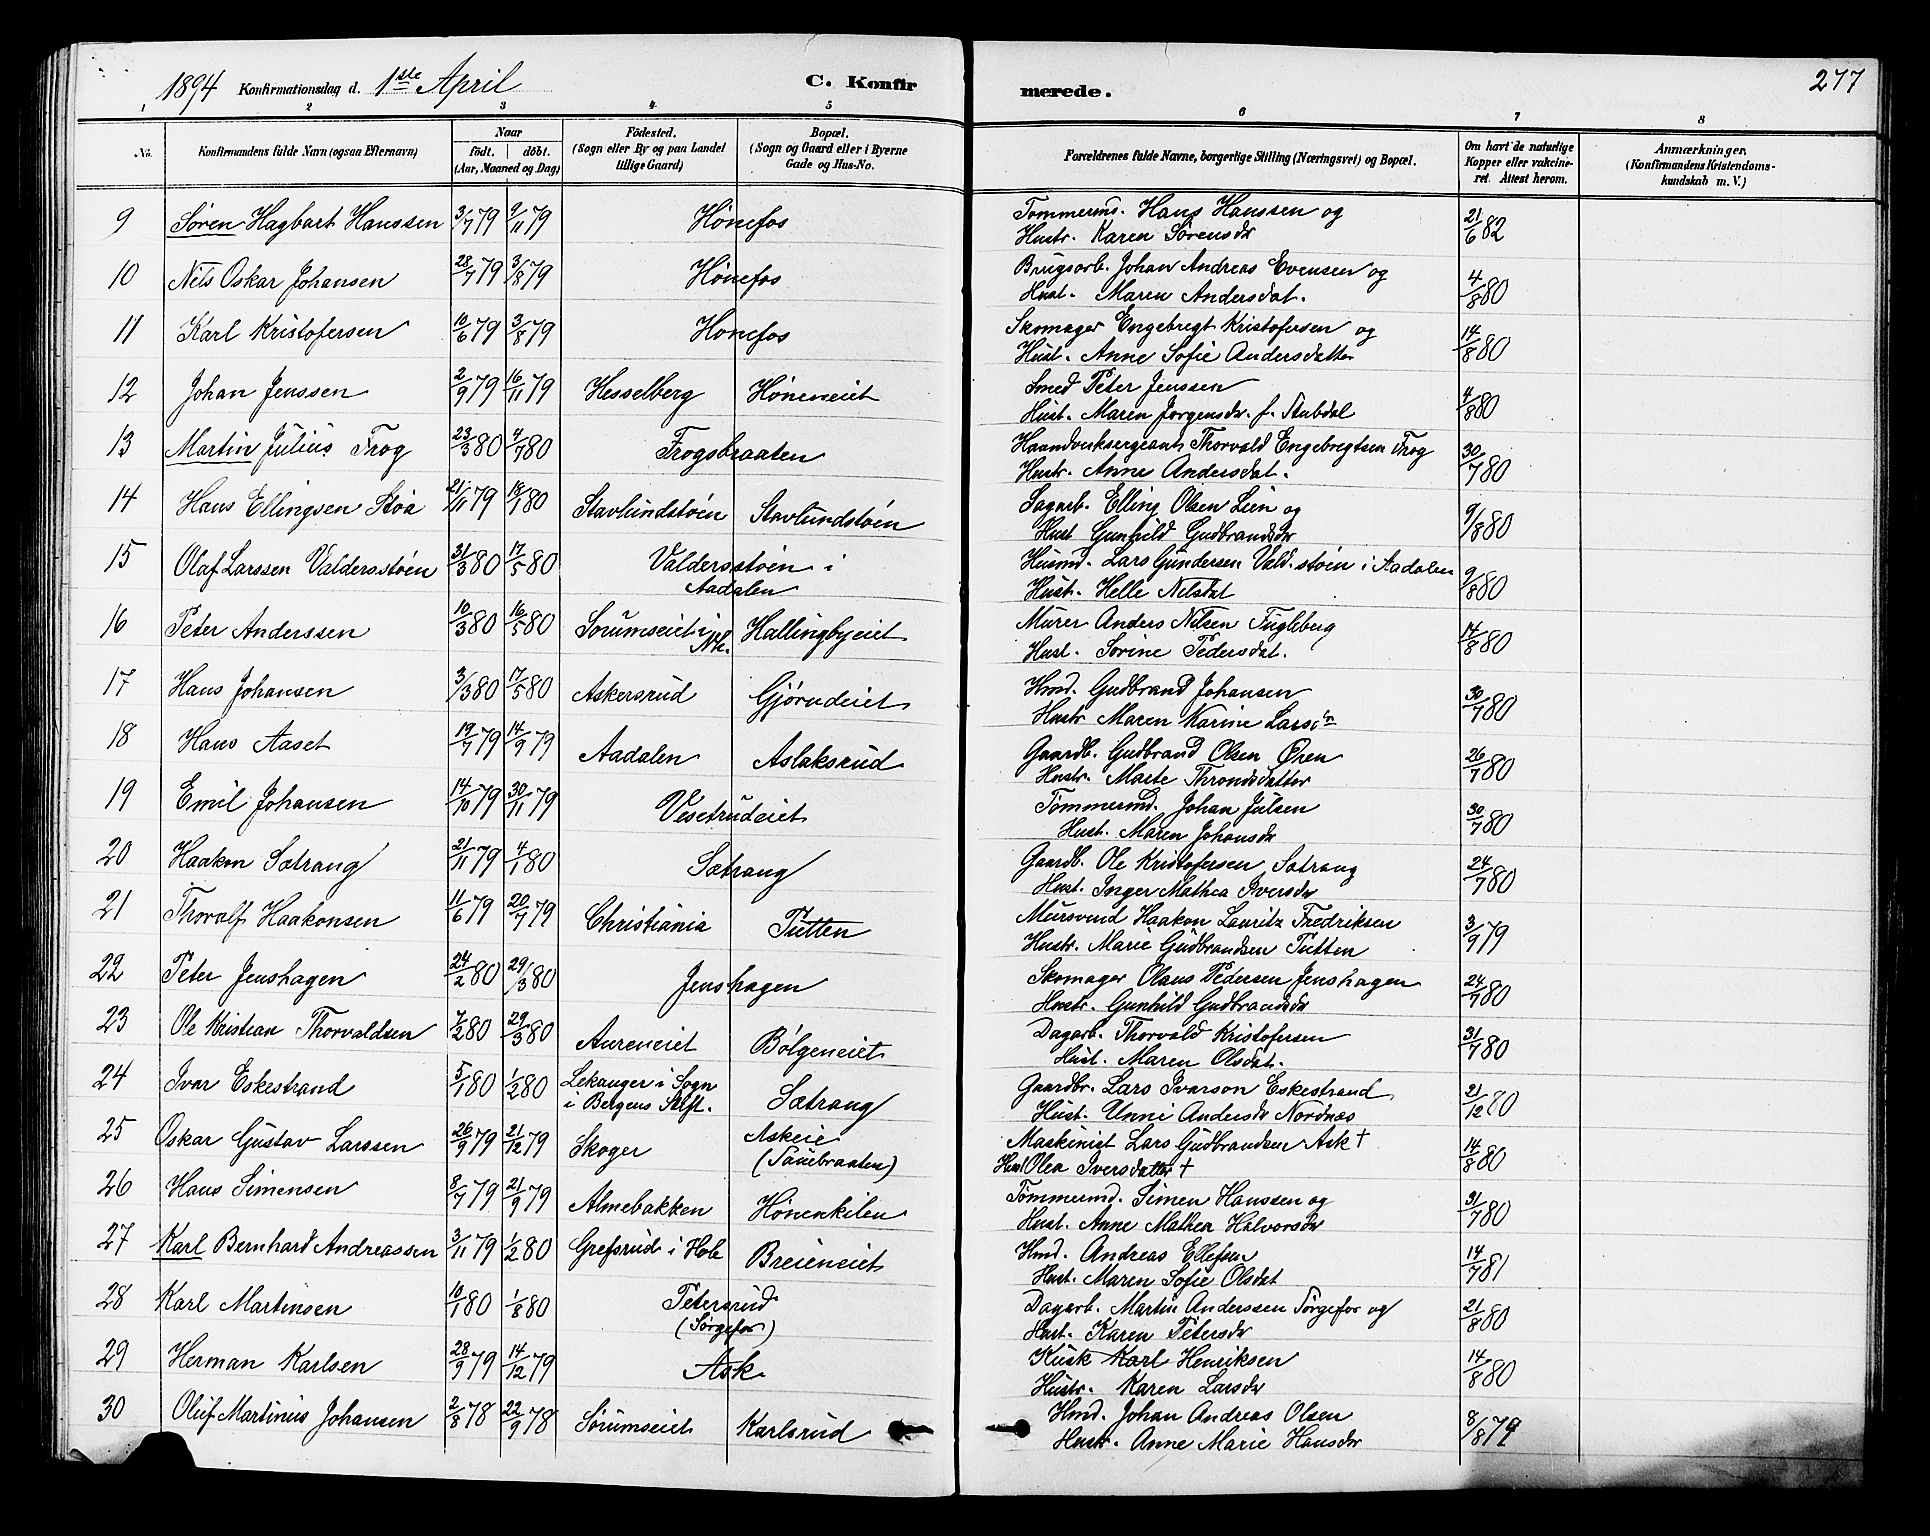 1894 Konfirmationsdag d. 1ste April C. Konfirmerede. 277
1 2 3 4 5 6 7 8
No. Konfirmandens fulde Navn (ogsaa Efternavn) Naar født. døbt. (Aar, Maaned og Dag) Fødested. (Sogn eller By og paa Landet tillige Gaard) Bopæl. (Sogn og Gaard eller i Byerne Gade og Hus-No. Forældrenes fulde Navne, borgerlige Stilling (Næringsvei) og Bopæl. Om havt de naturlige Kopper eller vakcineret. Attest herom. Anmærkninger, (Konfirmandens Kristendomskundskab m. V.)
9 Søren Hagbart Hanssen 3/7 79 9/11 79 Hønefos Tømmermd. Hans Hanssen og 21/6 82
Hustr. Karen Sørensdr
10 Nils Oskar Johansen 28/7 79 3/8 79 Hønefos Brugsarb. Johan Andreas Evensen og 4/8 80
Hust. Maren Andersdat.
11 Karl Kristofersen 10/6 79 3/8 79 Hønefos Skomager Engebregt Kristofersen og 14/8 80
Hust. Anne Sofie Andersdatter
12 Johan Jenssen 2/9 79 16/11 79 Hesselberg Høneneiet Smed Peter Jenssen 4/8 80
Hust. Maren Jørgensdr. f. Stubdal
13 Martin Julius Frog 23/3 80 4/7 80 Frogsbraaten Haandverksergeant Thorvald Engebregtsen Frog 30/7 80
Hustr. Anne Andersdat.
14 Hans Ellingsen Støa 21/11 79 18/1 80 Stavlundstøen Stavlundstøen Sagarb. Elling Olsen Lien og 9/8 80
Hust Gunhild Gudbrandsdr
15 Olaf Larssen Valdersstøen 31/3 80 17/5 80 Valdersstøen i Husmd. Lars Gundersen Vald.støen i Aadalen 9/8 80
Aadalen Hust. Helle Nilsdat
16 Peter Anderssen 10/3 80 16/5 80 Sørumseiet i Hallingbyeiet Murer Anders Nilsen Fugleberg 14/8 80
Hust. Sørine Pedersdat.
17 Hans Johansen 3/3 80 17/5 80 Askersrud Gjørudeiet Hmd. Gudbrand Johansen 30/7 80
Hustr Maren Karine Larsdr
18 Hans Aaset 19/7 79 14/9 79 Aadalen Aslaksrud Gaardb. Gudbrand Olsen Øren 26/7 80
Hustr. Marte Throndsdatter
19 Emil Johansen 14/10 79 30/11 79 Vesetrudeiet Tømmermd. Johan Julsen 30/7 80
Hust. Maren Johansdr
20 Haakon Sætrang 21/11 79 4/1 80 Sætrang Gaardb. Ole Kristofersen Sætrang 24/7 80
Hust. Inger Mathea Iversdr
21 Thoralf Haakonsen 11/6 79 20/7 79 Christiania Tutten Mursvend Haakon Lauritz Fredriksen 3/9 79
Hustr. Marie Gudbrandsen Tutten
22 Peter Jenshagen 24/2 80 29/3 80 Jenshagen Skomager Olaus Pedersen Jenshagen 24/7 80
Hustr. Gunhild Gudbrandsdr
23 Ole Kristian Thorvaldsen 7/2 80 29/3 80 Aureneiet Bølgeneiet Dagarb. Thorvald Kristofersen 31/7 80
Hust. Maren Olsdat.
24 Ivar Eskestrand 5/1 80 1/2 80 Lekanger i Sogn Sætrang Gaardbr. Lars Ivarson Eskestrand 21/12 80
i Bergens Stift. Hust. Unni Andersdr Nordnæs
25 Oskar Gustav Larssen 26/9 79 21/12 79 Skoger Askeie Maskinist Lars Gudbrandsen Ask † 14/8 80
(Sauebraaten) Hust Olea Iversdatter †
26 Hans Simensen 8/7 79 21/9 79 Almebakken Hønenkilen Tømmermd. Simen Hanssen og 31/7 80
Hust. Anne Mathea Halvorsdr
27 Karl Bernhard Andreassen 3/11 79 1/2 80 Grefsrud i Hole Breieneiet Hmd. Andreas Ellefsen 14/7 81
Hust. Maren Sofie Olsdat
28 Karl Martinsen 10/1 80 1/8 80 Petersrud Dagarb. Martin Anderssen Sørgefos og 21/8 80
(Sørgefos) Hust. Karen Petersdr
29 Herman Karlsen 28/9 79 14/12 79 Ask Kusk Karl Henriksen 14/8 80
Hustr. Karen Larsdr
30 Oluf Martinus Johansen 2/8 78 22/9 78 Sørumseiet Karlsrud Hmd. Johan Andreas Olsen 8/8 79
Hustr. Anne Marie Hansdr